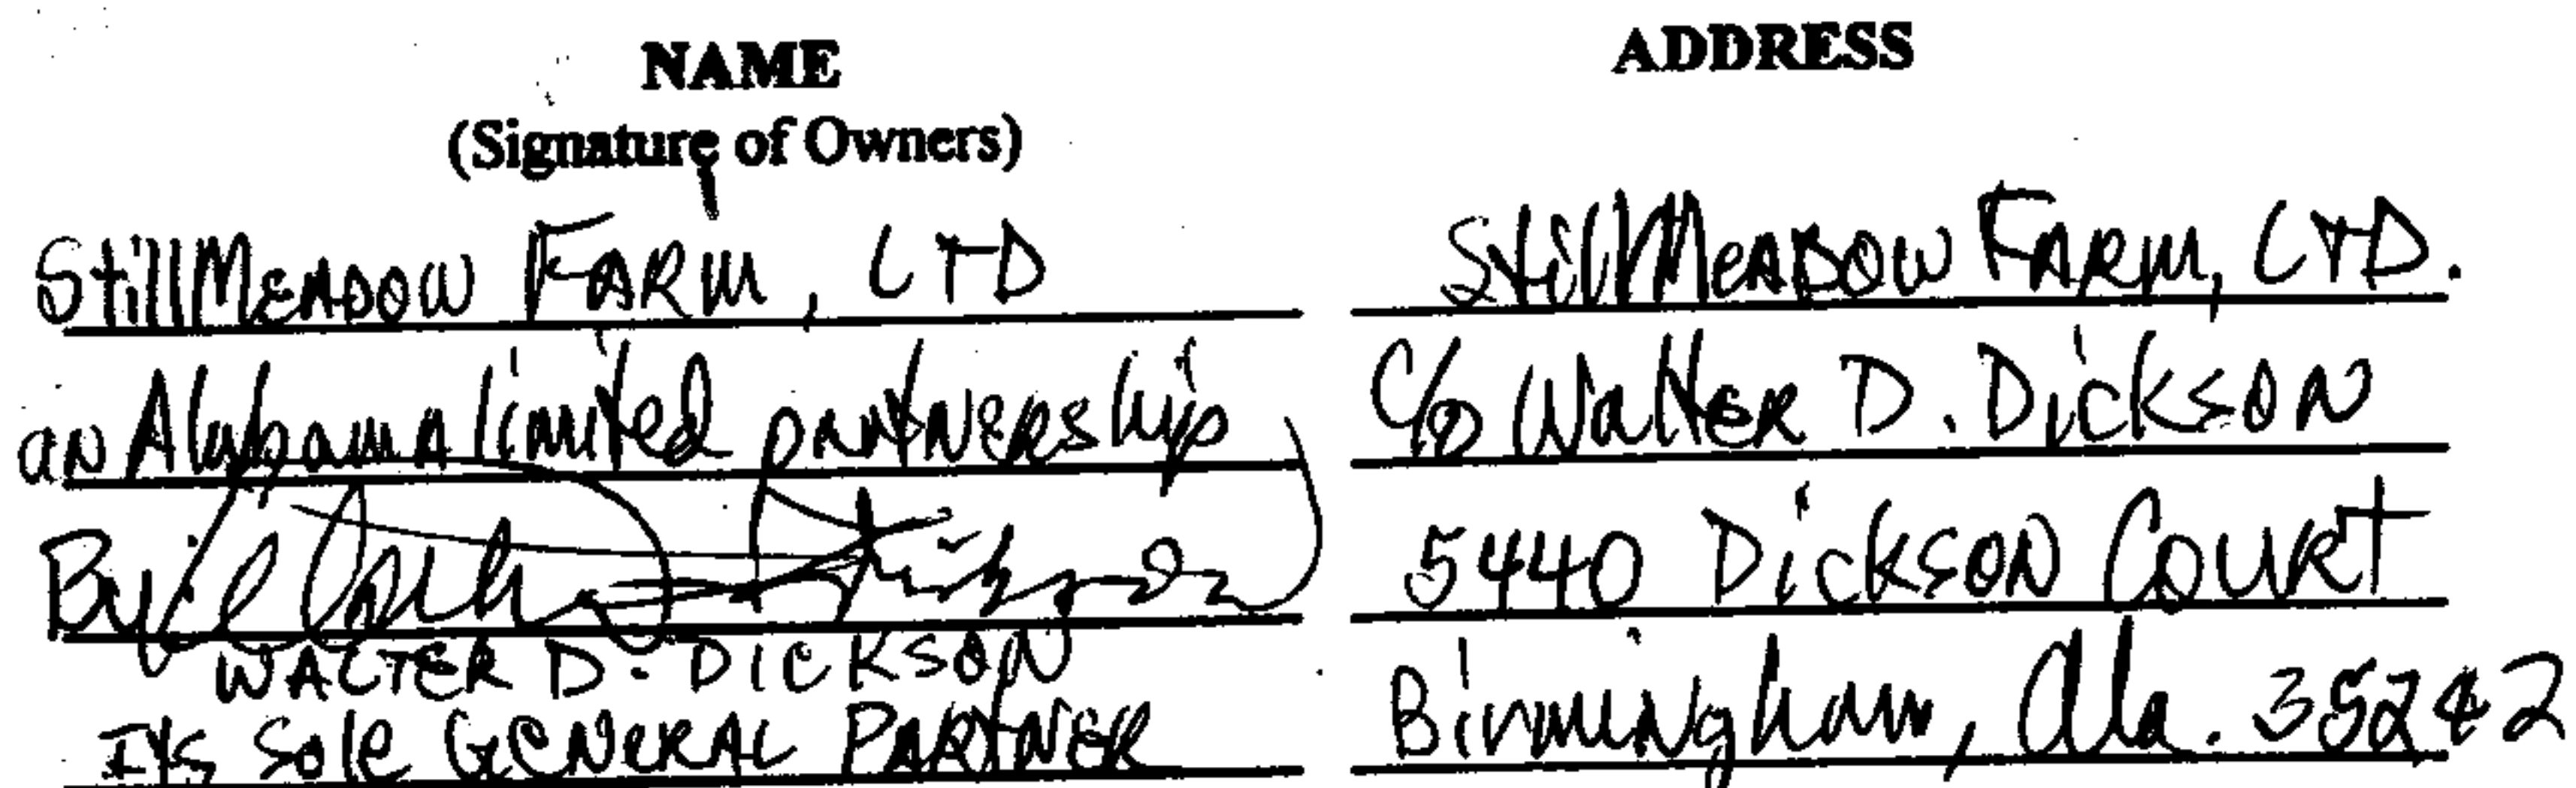 NAME
(Signature of Owners)
StillMEADOW FARM, LTD
an Alabama limited partnership
By
WALTER D. DICKSON
Its Sole GENERAL PARTNER
ADDRESS
StillMEADOW FARM, LTD.
C/O Walter D. Dickson
5440 Dickson Court
Birmingham, Ala. 35242